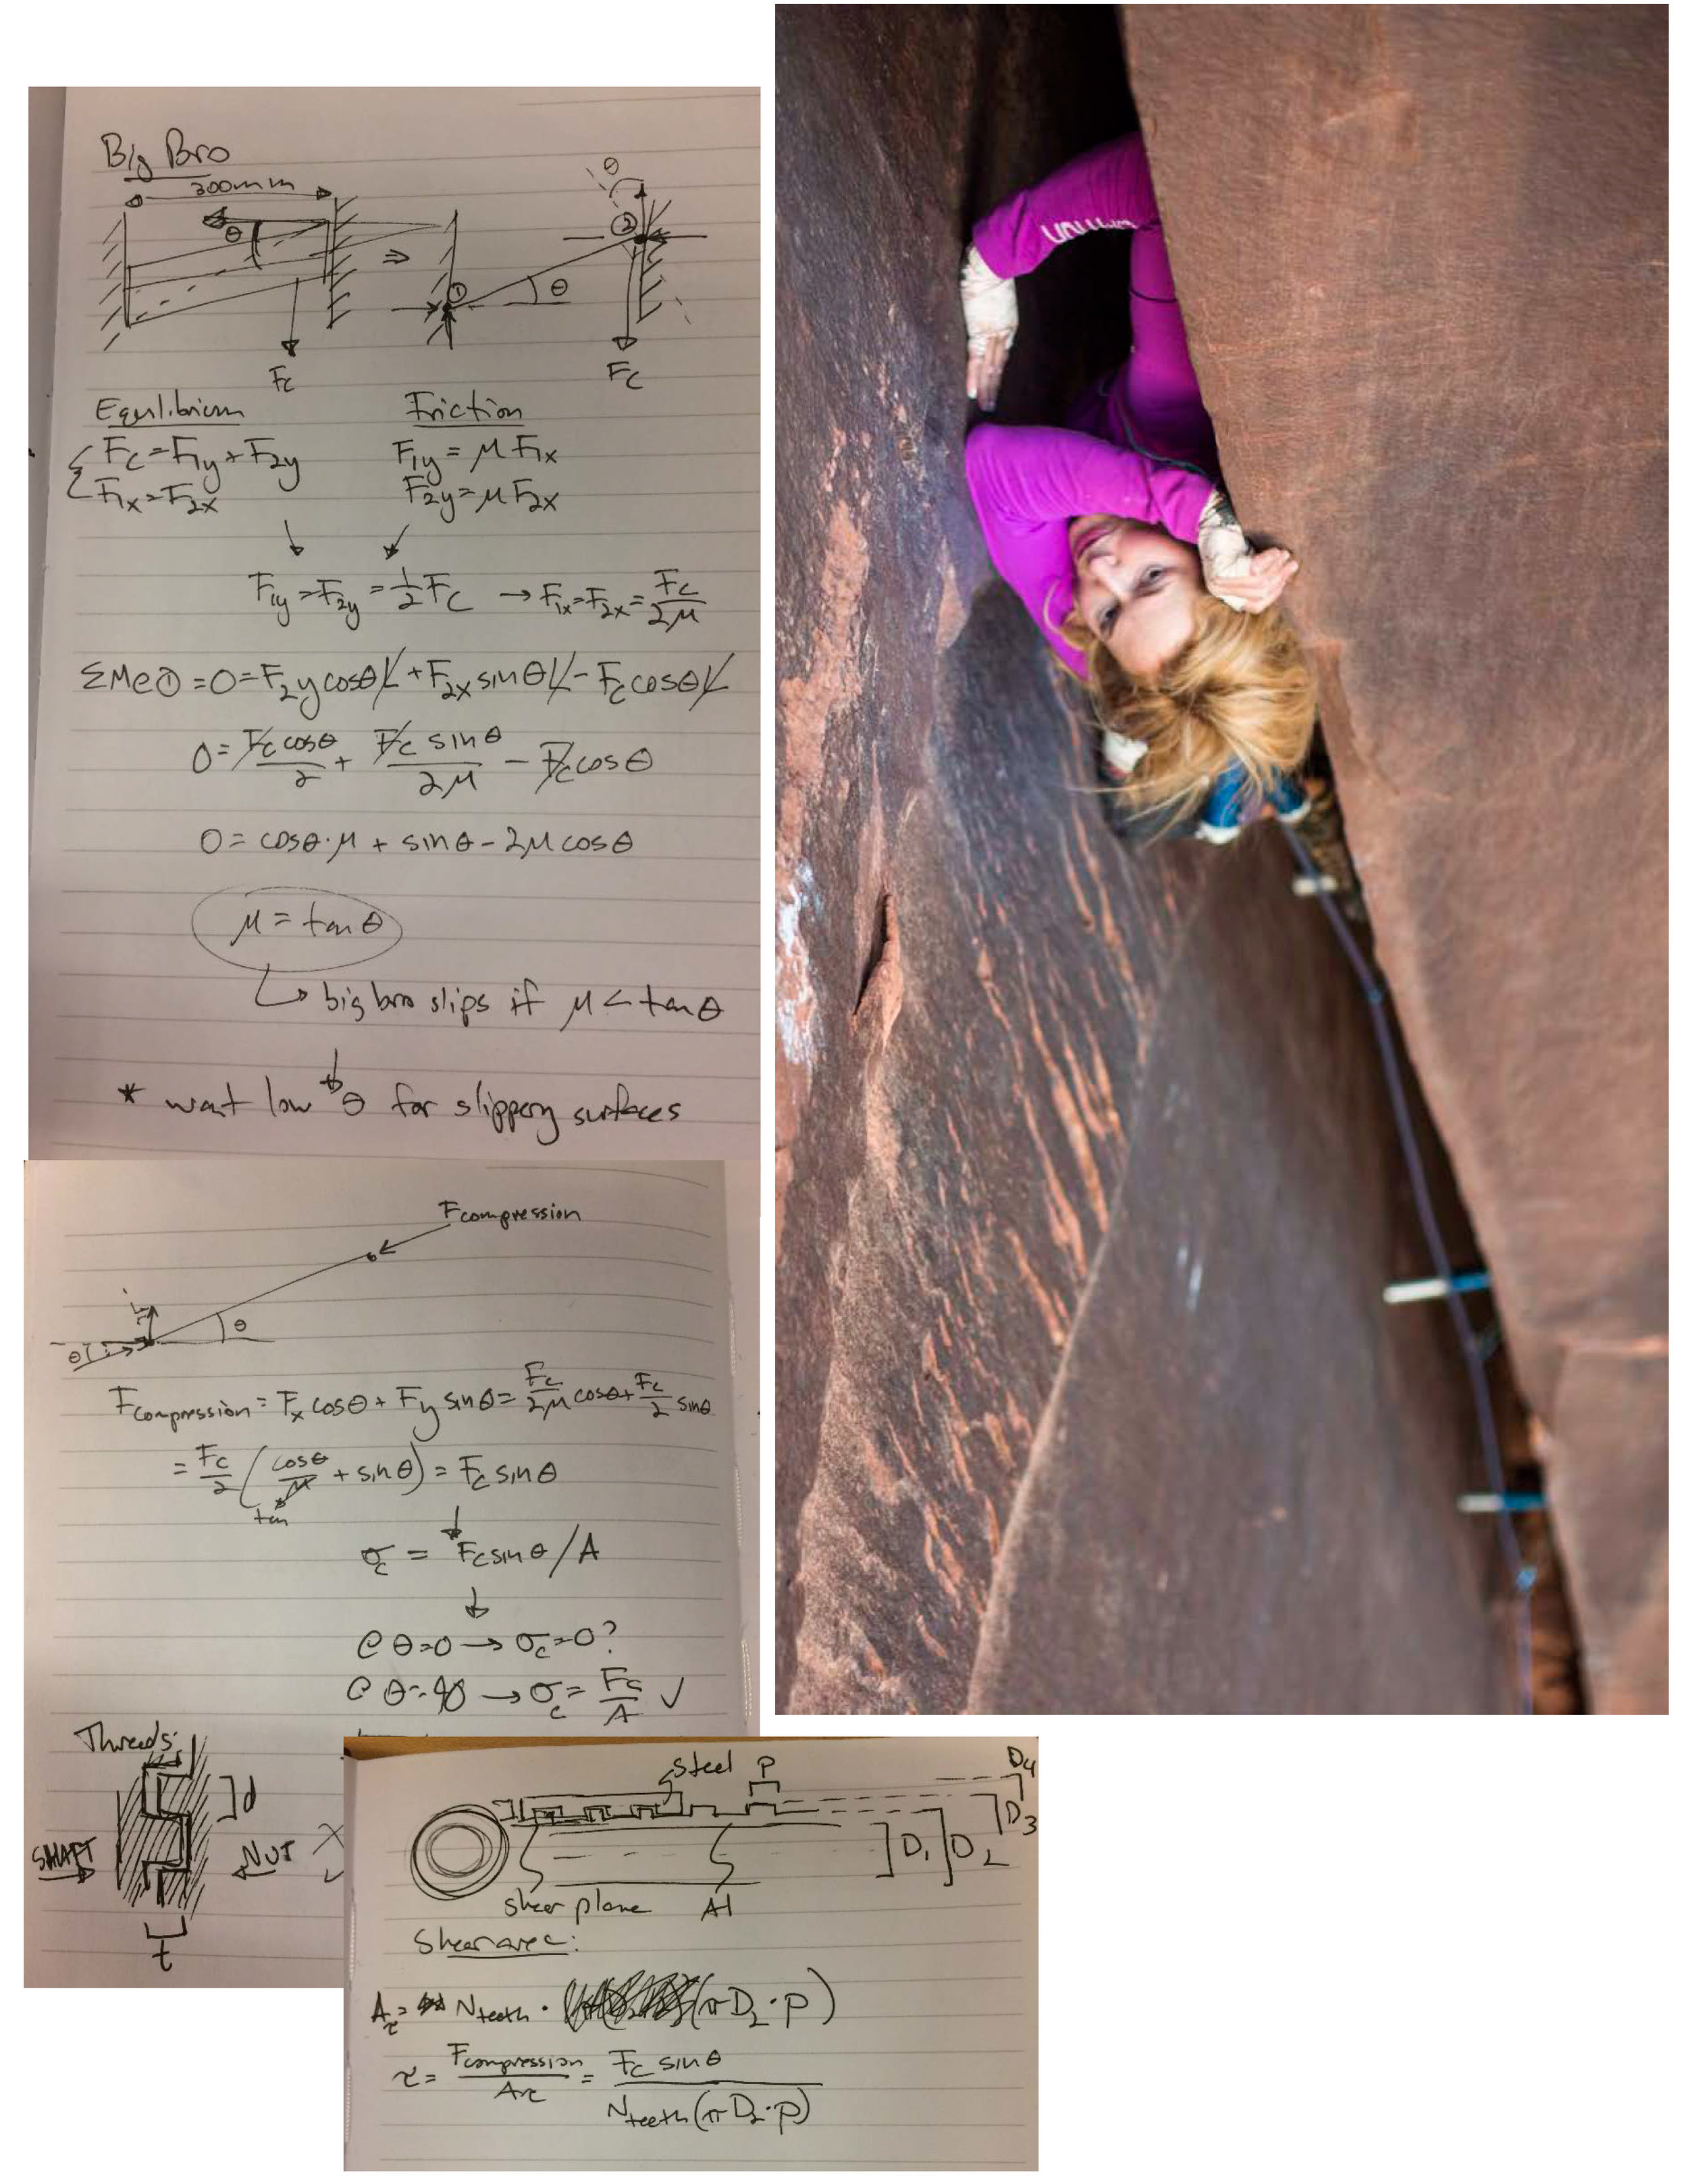 Big Bro
300mm
θ
θ
②
⇒
①
θ
Fc
Fc
Equilibrium
Friction
{ Fc = F1y + F2y
F1x = F2x
F1y = μ F1x
F2y = μ F2x
F1y = F2y = 1/2 Fc → F1x = F2x = Fc/2μ
ΣM@① = 0 = F2y cosθ L + F2x sinθ L - Fc cosθ L
0 = Fc cosθ/2 + Fc sinθ/2μ - Fc cosθ
0 = cosθ·μ + sinθ - 2μ cosθ
μ = tanθ
↳ big bro slips if μ < tanθ
* want low θ for slippery surfaces
Fcompression
θ
θ
Fcompression = Fx cosθ + Fy sinθ = Fc/2μ cosθ + Fc/2 sinθ
= Fc/2 (cosθ/μ + sinθ) = Fc sinθ
tan
σc = Fc sinθ/A
@ θ=0 → σc=0?
@ θ=90 → σc = Fc/A ✓
Threads:
d
SHAFT
NUT
t
steel
P
D4
D3
D1
D2
shear plane
Al
Shear area:
Aτ = Nteeth · (πD2·P)
τ = Fcompression/Aτ = Fc sinθ/Nteeth(πD2·P)